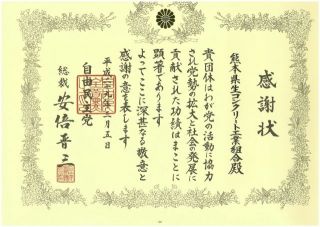 感謝状
熊本県生コンクリート工業組合殿
貴団体はわが党の活動に協力
され党勢の拡大と社会の発展に
貢献された功績はまことに
顕著であります
よってここに深甚なる敬意と
感謝の意を表します
平成二十九年三月五日
自由民主党
総裁 安倍晋三